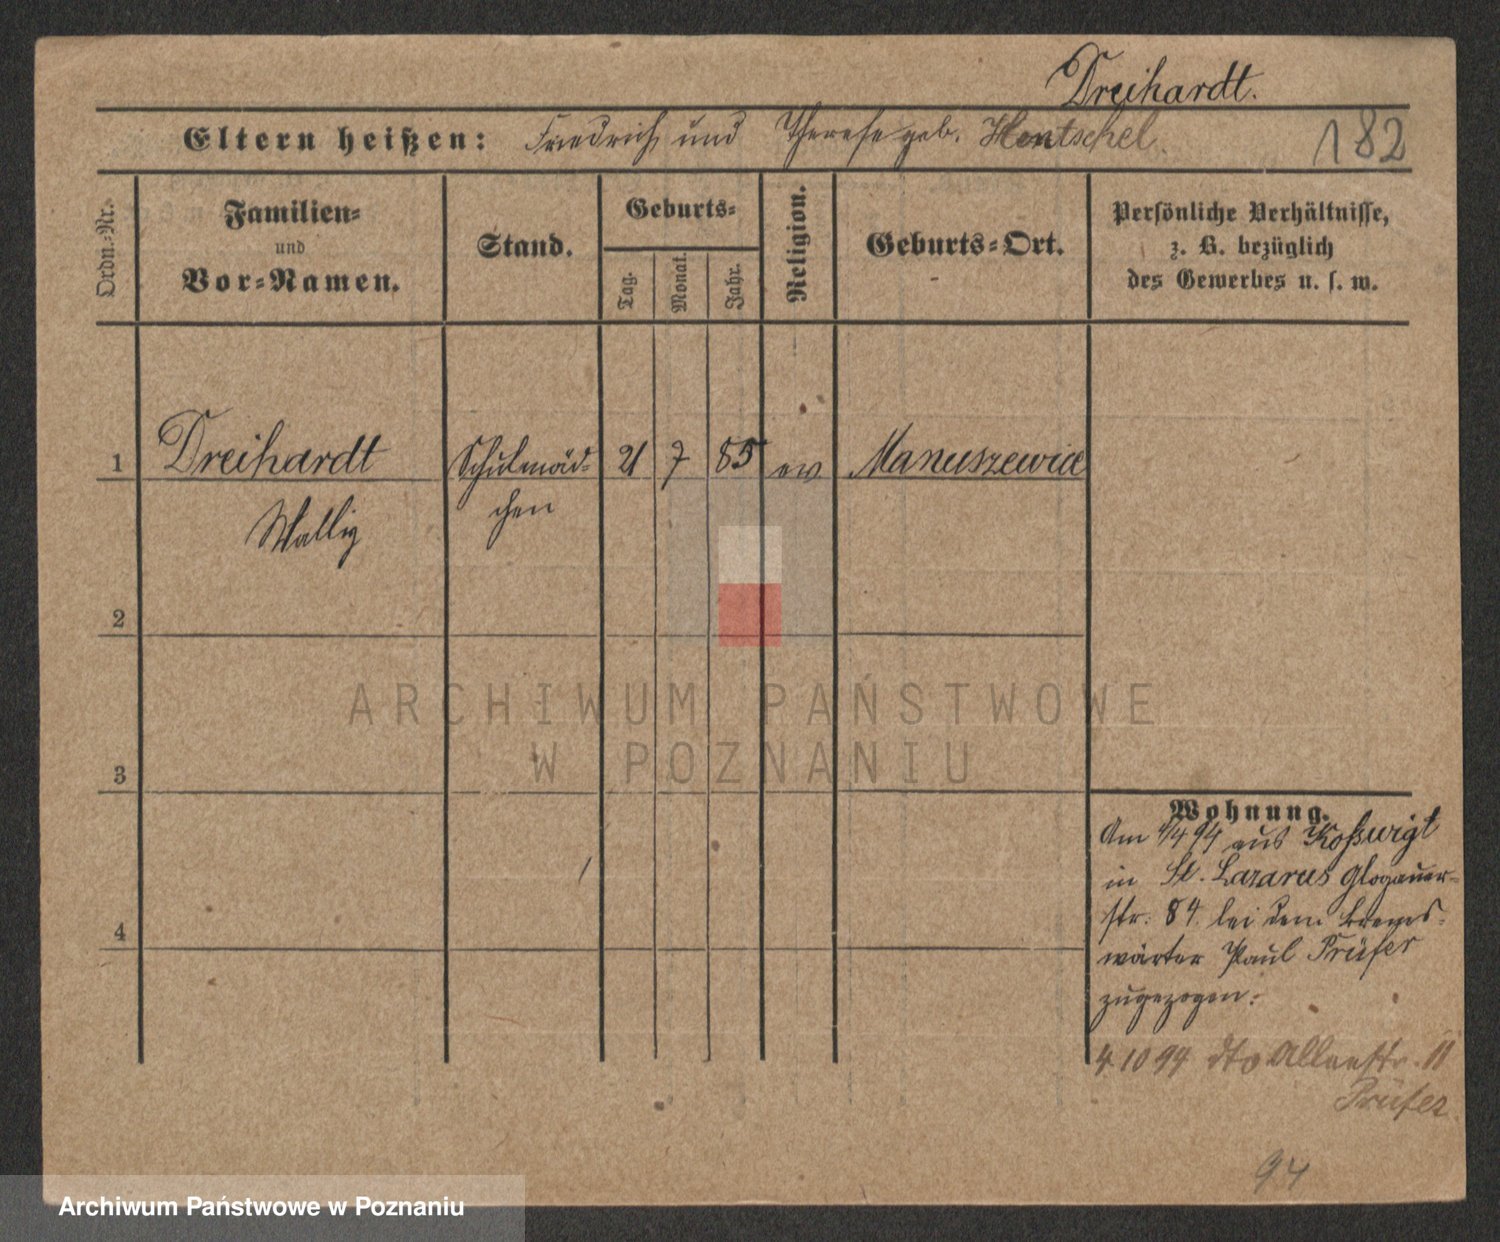 Dreihardt.
Eltern heißen: Friedrich und Therese geb. Hentschel.
182
Ordn.-Nr.
Familien-
und
Vor-Namen.
Stand.
Geburts-
Tag.
Monat.
Jahr.
Religion.
Geburts-Ort.
Persönliche Verhältnisse,
z. B. bezüglich
des Gewerbes u. s. w.
1 Dreihardt Schulmäd- 21 7 85 ev Manuszewice
Wally chen
2
ARCHIWUM PAŃSTWOWE
W POZNANIU
3
Wohnung.
Am 4/4 94 aus Koßwigt
in St. Lazarus Glogauer-
str. 84 bei dem
wärter Paul Prüfer
zugezogen.
4
4 10 94 dto Alleestr. 11
Prüfer
94
Archiwum Państwowe w Poznaniu